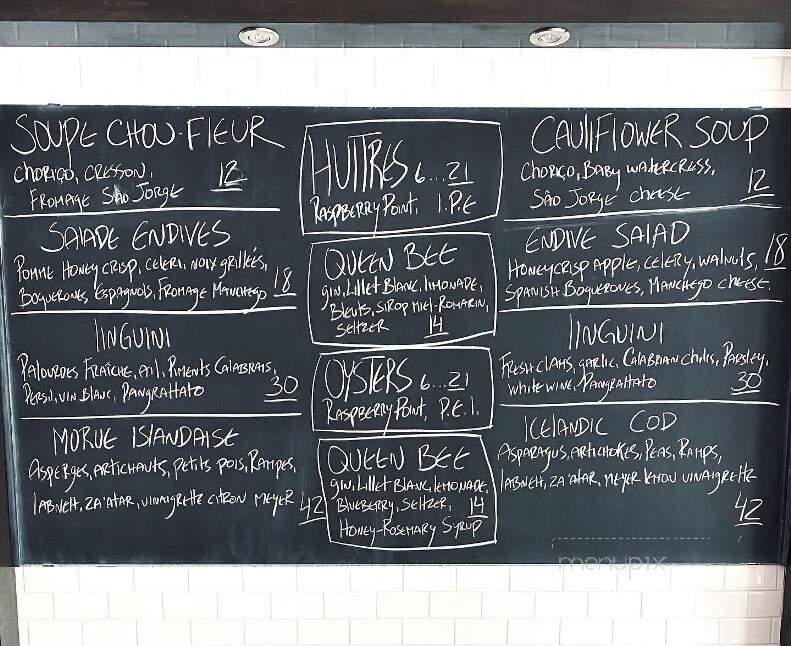 SOUPE CHOU-FLEUR
CHORIÇO, CRESSON,
FROMAGE SÃO JORGE 12
SALADE ENDIVES
POMME HONEYCRISP, CELERI, NOIX GRILLÉES,
BOQUERONES ESPAGNOLS, FROMAGE MANCHEGO 18
LINGUINI
PALOURDES FRAÎCHE, AIL, PIMENTS CALABRAIS,
PERSIL, VIN BLANC, PANGRATTATO 30
MORUE ISLANDAISE
ASPERGES, ARTICHAUTS, PETITS POIS, RAMPES,
LABNEH, ZA'ATAR, VINAIGRETTE CITRON MEYER 42
HUITRES 6...21
RASPBERRY POINT, I.P.E
QUEEN BEE
GIN, LILLET BLANC, LIMONADE,
BLEUTS, SIROP MIEL-ROMARIN,
SELTZER 14
OYSTERS 6...21
RASPBERRY POINT, P.E.I.
QUEEN BEE
GIN, LILLET BLANC, LEMONADE,
BLUEBERRY, SELTZER, 14
HONEY-ROSEMARY SYRUP
CAULIFLOWER SOUP
CHORIÇO, BABY WATERCRESS,
SÃO JORGE CHEESE 12
ENDIVE SALAD
HONEYCRISP APPLE, CELERY, WALNUTS, 18
SPANISH BOQUERONES, MANCHEGO CHEESE
LINGUINI
FRESH CLAMS, GARLIC, CALABRIAN CHILIS, PARSLEY,
WHITE WINE, PANGRATTATO 30
ICELANDIC COD
ASPARAGUS, ARTICHOKES, PEAS, RAMPS,
LABNEH, ZA'ATAR, MEYER LEMON VINAIGRETTE
42
menupix